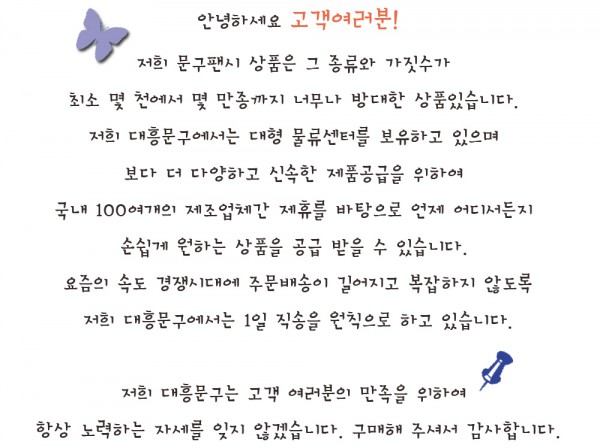 안녕하세요 고객여러분!
저희 문구팬시 상품은 그 종류와 가짓수가
최소 몇 천에서 몇 만종까지 너무나 방대한 상품있습니다.
저희 대흥문구에서는 대형 물류센터를 보유하고 있으며
보다 더 다양하고 신속한 제품공급을 위하여
국내 100여개의 제조업체간 제휴를 바탕으로 언제 어디서든지
손쉽게 원하는 상품을 공급 받을 수 있습니다.
요즘의 속도 경쟁시대에 주문배송이 길어지고 복잡하지 않도록
저희 대흥문구에서는 1일 직송을 원칙으로 하고 있습니다.
저희 대흥문구는 고객 여러분의 만족을 위하여
항상 노력하는 자세를 잊지 않겠습니다. 구매해 주셔서 감사합니다.